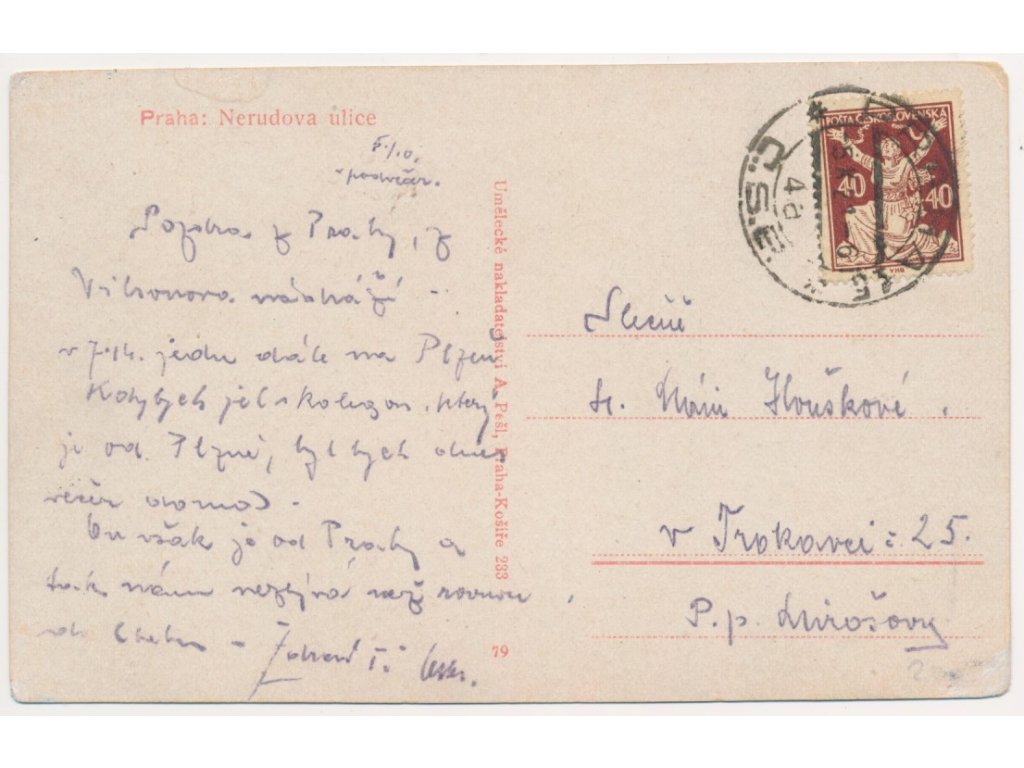 Praha: Nerudova ulice
podvečer.
Pozdrav z Prahy, z
Vilsonova nádraží –
v 7.14. jedu dále na Plzeň
Kdybych jel s kolegou, který
je od Plzně, byl bych dnes
večer doma –
On však je od Prahy a
tak nám nezbývá než rovnou
do Chebu – Zdraví T.
Umělecké nakladatelství A. Pešl, Praha-Košíře 233
79
POŠTA ČESKOSLOVENSKÁ
40 40
Č.S.P.
Slečně
sl. Máni Houškové
v Trokavci č. 25.
P. p. Mirošovy